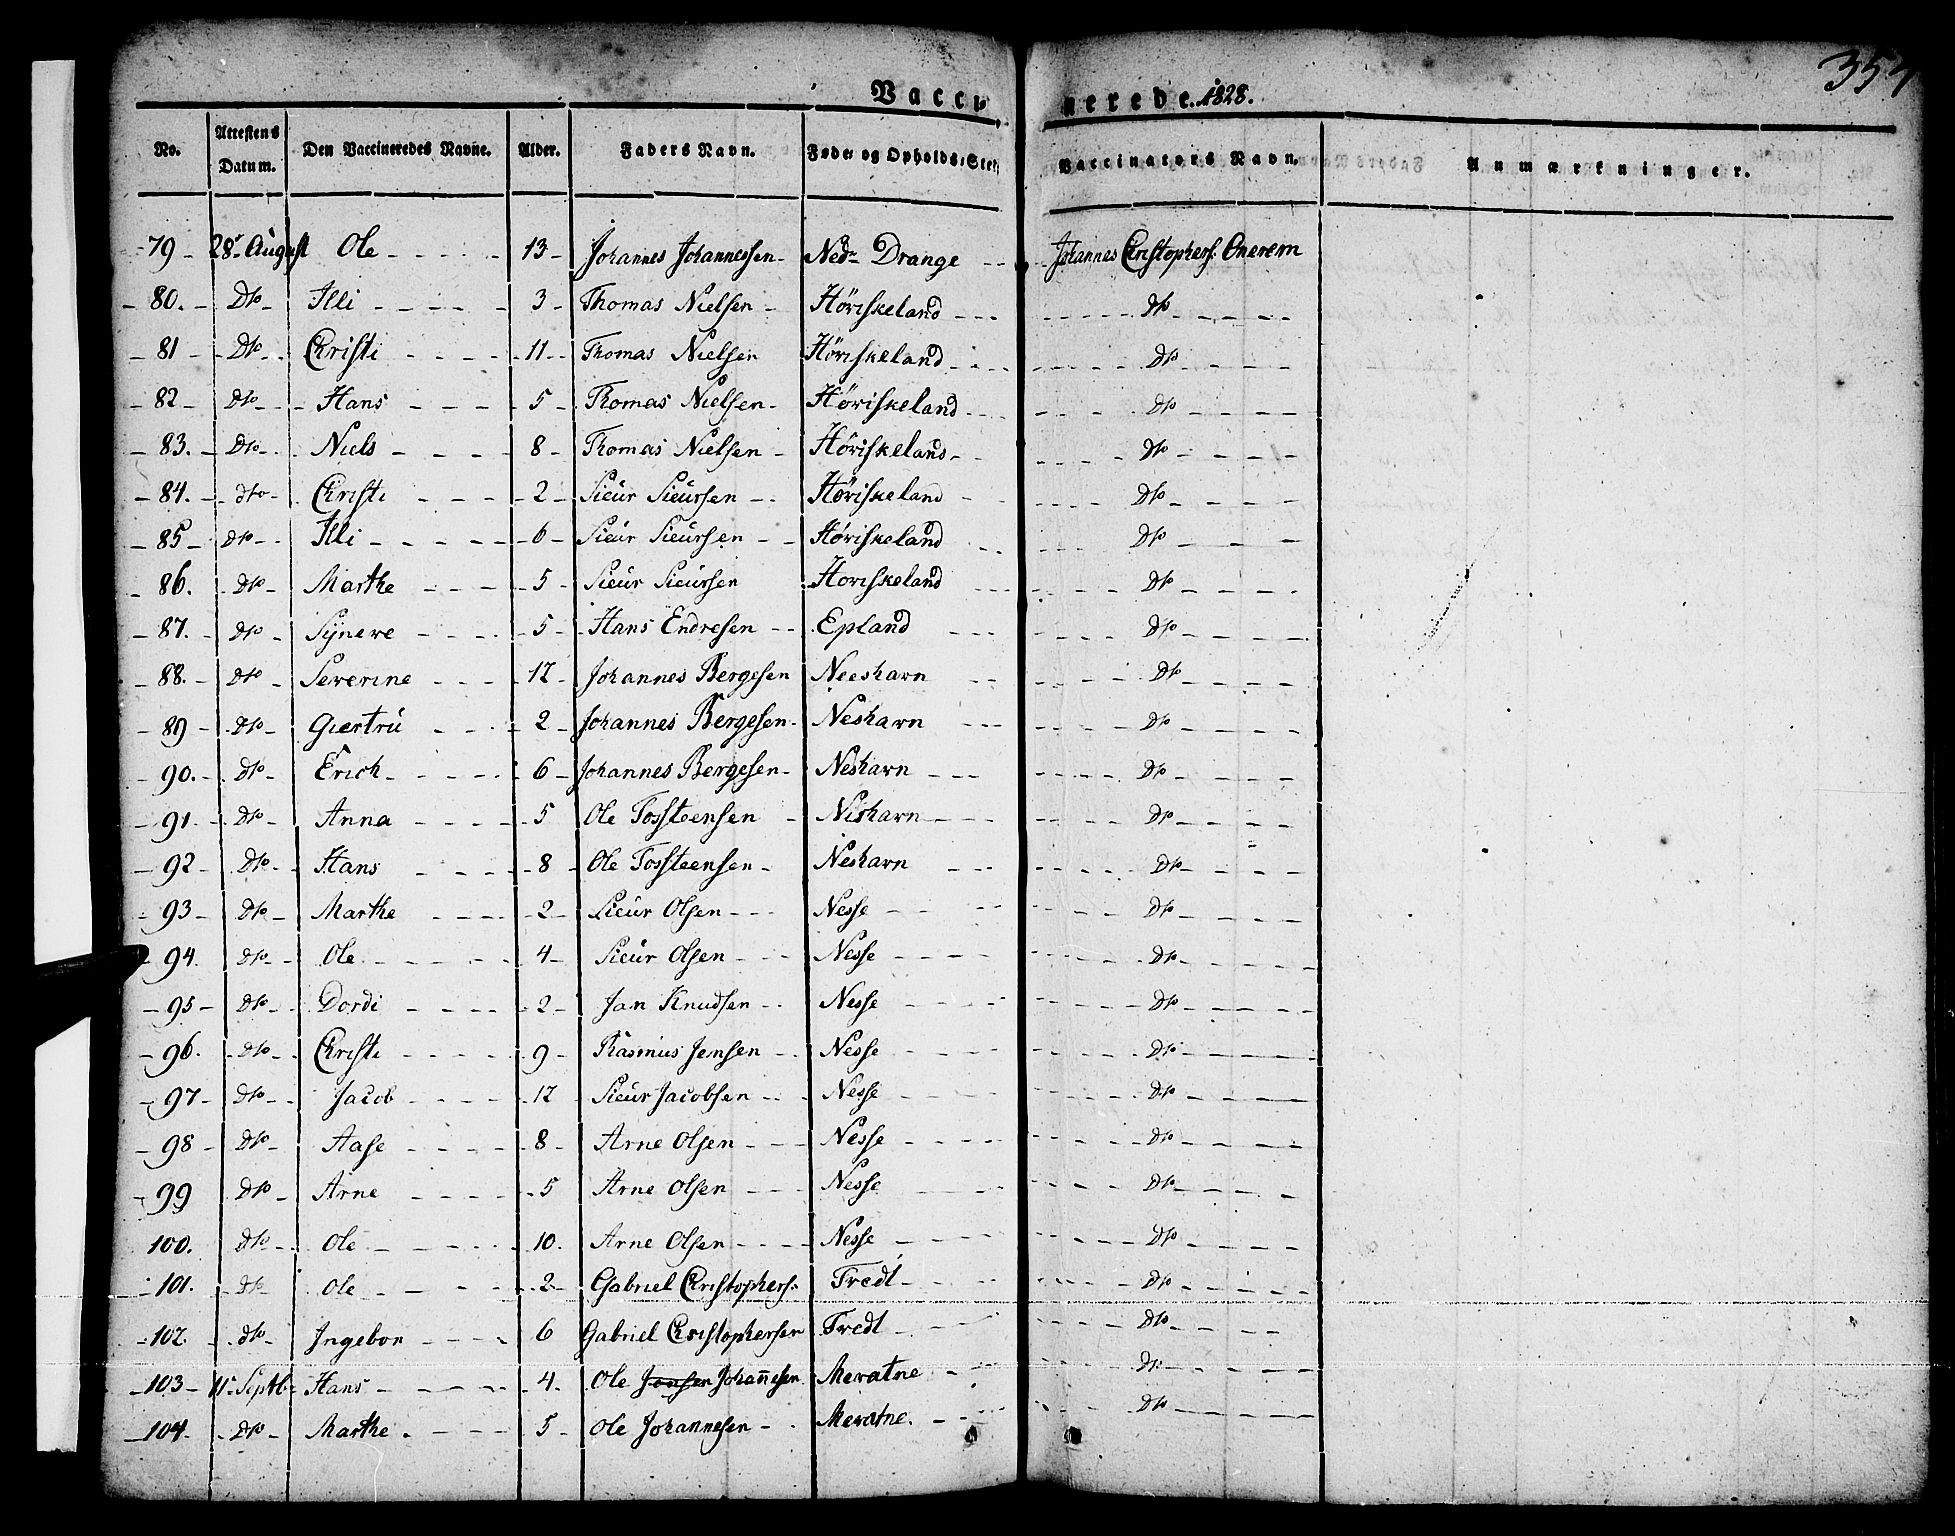 Vaccinerede. 1828.
No. | Attestens Datum. | Den Vaccineredes Navne. | Alder. | Faders Navn. | Føde- og Opholds-Sted | Vaccinators Navn. | Anmærkninger.
79 - 28de August Ole - - - - - 13 - Johannes Johannessen - Nedr Drange - - - Johannes Christophers:
- 80. - Dto - Illi - - - - - 3 - Thomas Nielsen - Höriskeland - - - Dto - - - -
- 81 - Dto - Christi - - - - 11 - Thomas Nielsen Höriskeland - - - Dto - - - -
- 82 - Dto - Hans - - - 5 - Thomas Nielsen - Höriskeland - - - Dto - - - -
- 83. - Dto - Niels - - - - 8 - Thomas Nielsen - Höriskeland - - - Dto - - - -
- 84. - Dto - Christi - - - 2 - Sieur Sieursen - - Höriskeland - - - Dto - - - -
- 85 - Dto - Illi - - - - - 6 - Sieur Sieursen - - Höriskeland - - - Dto - - - -
- 86. - Dto - Marthe - - - 5 - Sieur Sieursen Horiskeland - - - Dto - - - -
- 87. - Dto - Syneve - - - 5 - Hans Endresen - - Epland - - - Dto - - - -
- 88. - Dto - Severine - - - 12 - Johannes Bergesen Neeshavn - - - Dto - - - -
- 89 - Dto - Giertrü - - - 2 - Johannes Bergesen - Neshavn - - - Dto - - - -
- 90. - Dto - Erich - - - - 6 - Johannes Bergesen - Neshavn - - - Dto - - - -
- 91 - Dto - Anna - - - - 5 Ole Tossteensen - Neshavn - - - Dto - - - -
- 92 - Dto - Hans - - - - 8 - Ole Tossteensen - Neshavn - - - Dto - - - -
- 93 - Dto - Marthe - - - 2 - Sieur Olsen - - - Nesse - - - Dto - - - -
- 94. Dto - Ole - - - - 4 - Sieur Olsen - - - Nesse - - - Dto - - - -
- 95 - Dto - Dordi - - - - 2 - Jan Knudsen - - Nesse - - - Dto - - - -
- 96. - Dto - Christi - - - - 9 - Rasmus Jensen - - Nesse - - - Dto - - - -
- 97 - Dto - Jacob - - - - 12 Sieur Jacobsen - - Nesse - - - Dto - - - -
- 98 - Dto - Aase - - - - 8 - Arne Olsen - - - Nesse - - - Dto - - - -
- 99 Dto - Arne - - - - 5 Arne Olsen - - - Nesse - - - Dto - - - -
100. Dto - Ole - - - - 10. Arne Olsen - - - Nesse - - - Dto - - - -
101. Dto Ole - - - - 2 - Gabriel Christophers: Tredt - - - Dto - - - -
- 102. - Dto - Ingebor - - - - 6 Gabriel Christophersen Tredt - - - Dto - - - -
- 103 - 11te Septbr Hans - - - - 4. Ole Jansen Johannesen Meratne - - - Dto - - - -
- 104 - Dto - Marthe - - - - 5 - Ole Johannesen - - Meratne. - - - Dto - - - -